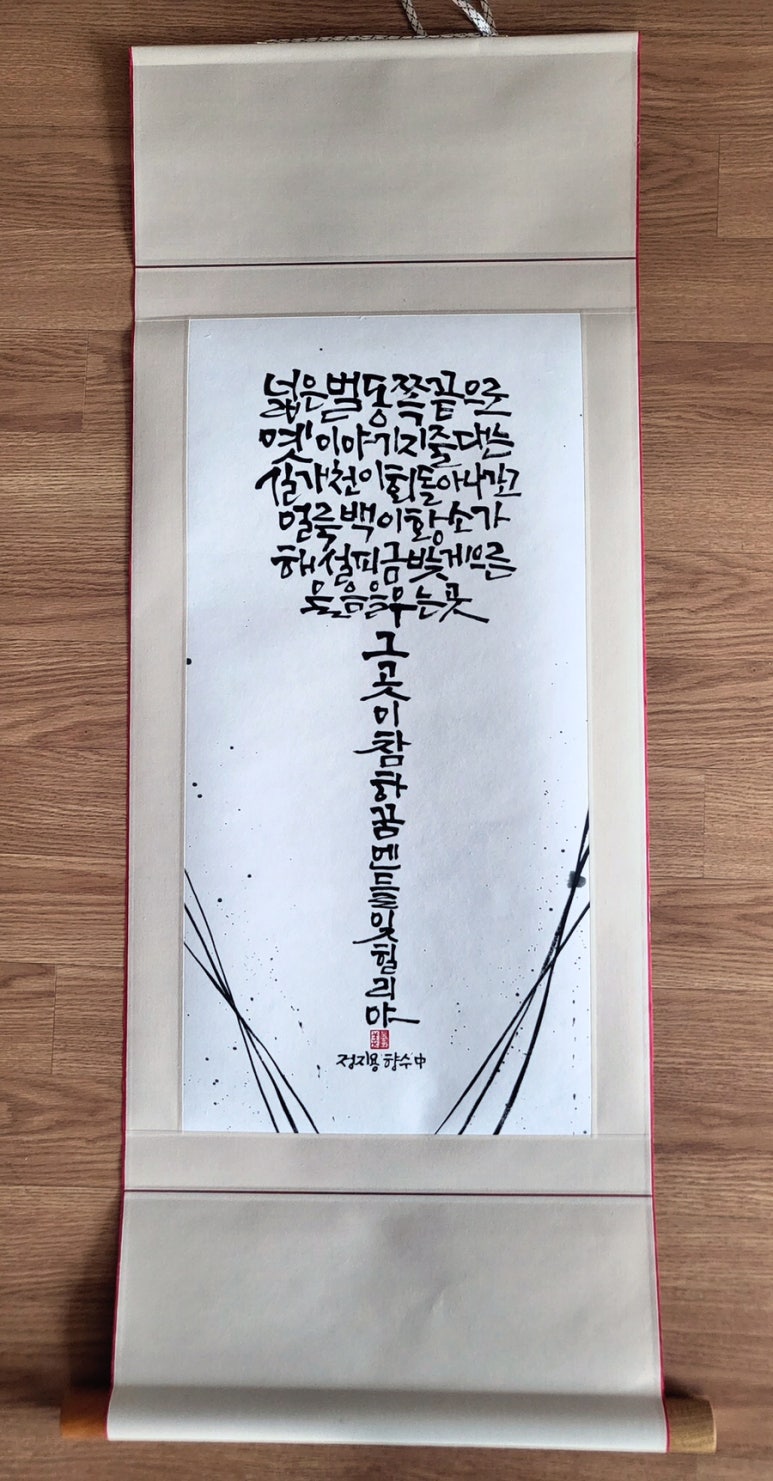 넓은벌동쪽끝으로
옛이야기지줄대는
실개천이회돌아나가고
얼룩백이황소가
해설피금빛게으른
울음을우는곳
그곳이참하꿈엔들잊힐리야
정지용 향수中